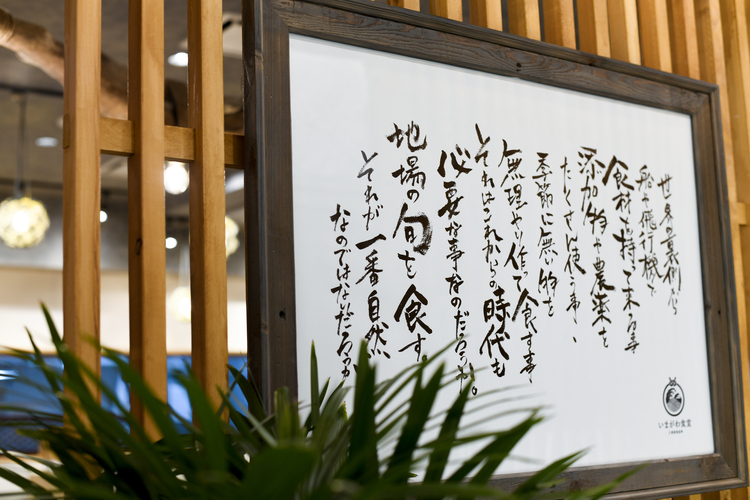 世界の裏側から
船や飛行機で
食材を持って来る事
添加物や農薬を
たくさん使う事、
季節に無い物を
無理やり作って食す事、
それはこれからの時代も
必要な事なのだろうか。
地場の旬を食す。
それが一番自然
なのではないだろうか
いまがわ食堂